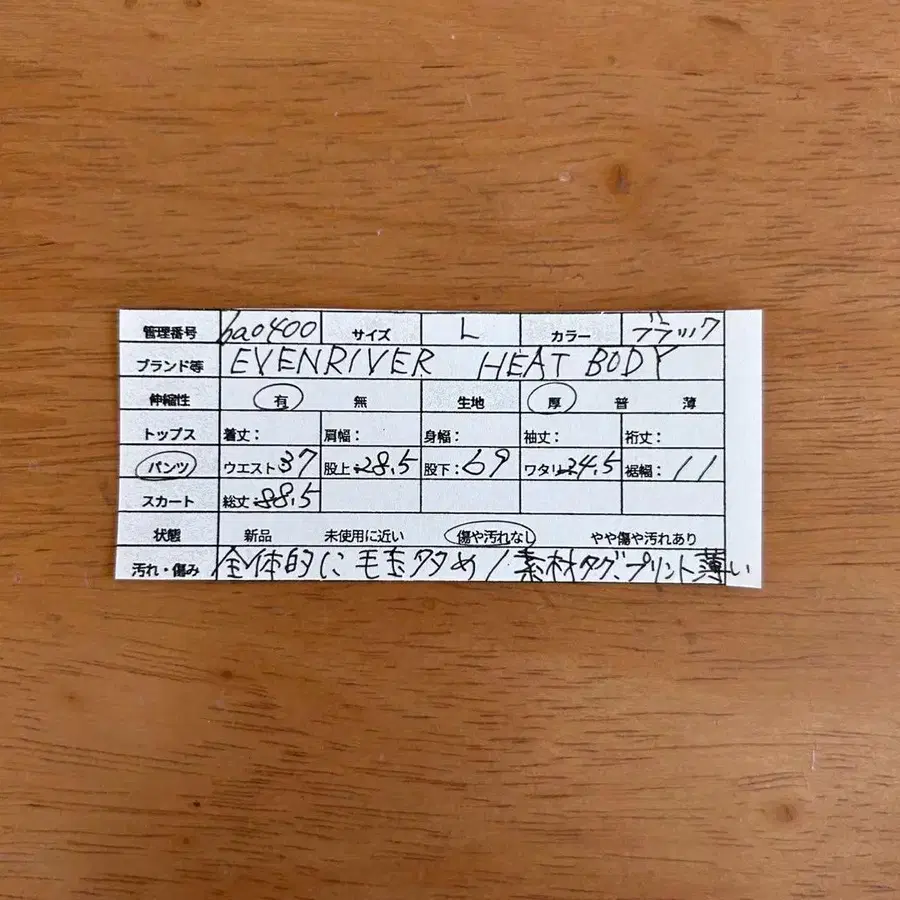 管理番号 bao400 サイズ L カラー ブラック
ブランド等 EVENRIVER HEAT BODY
伸縮性 有 無 生地 厚 普 薄
トップス 着丈: 肩幅: 身幅: 袖丈: 裄丈:
パンツ ウエスト 37 股上:28.5 股下:69 ワタリ:24.5 裾幅:11
スカート 総丈:88.5
状態 新品 未使用に近い 傷や汚れなし やや傷や汚れあり
汚れ・傷み 全体的に毛玉多め/素材タグ、プリント薄い